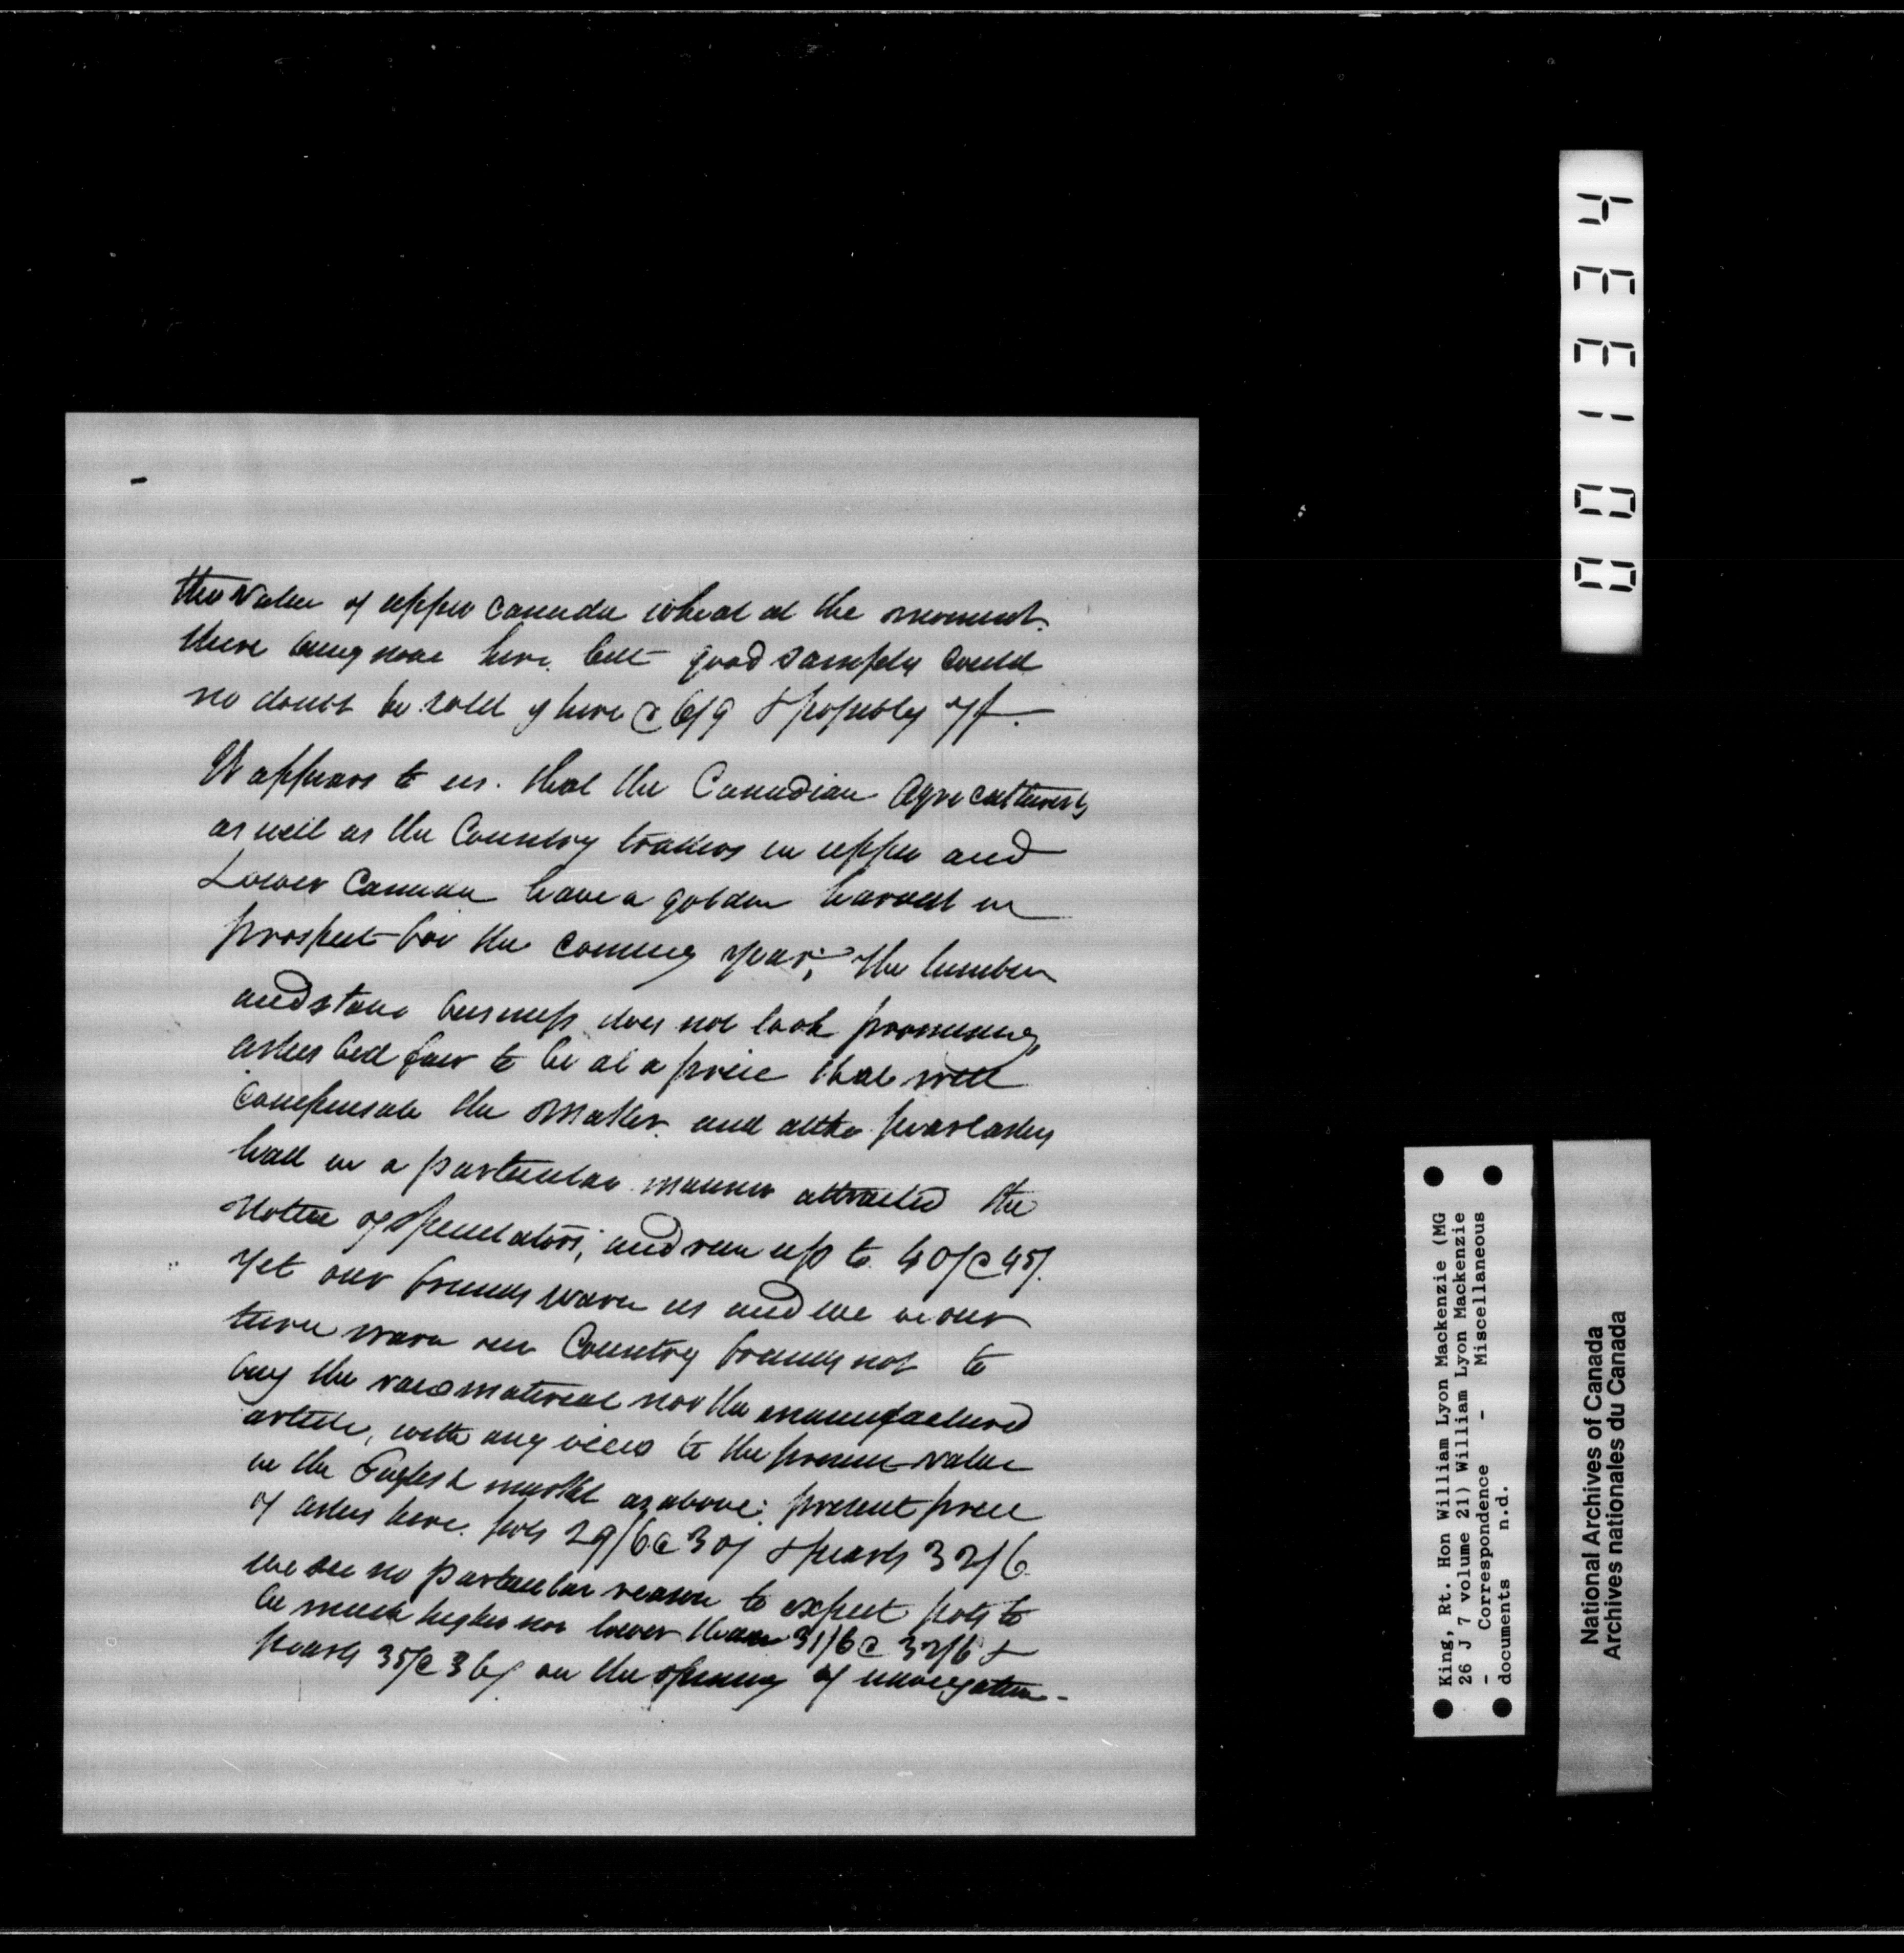 the value of upper canada wheat at the moment.
there being none here. but good samples could
no doubt be sold here @ 6/9 & 7/-
It appears to us. that the Canadian Agriculturists
as well as the Country traders in upper and
Lower Canada have a golden harvest in
prospect for the coming year; the lumber
and stave business does not look promising,
ashes bid fair to be at a price that will
compensate the maker. and altho pearlashes
had in a particular manner attracted the
Notice of speculators; and run up to 40/ @ 45/.
yet our friends warn us and we in our
turn warn our Country friends not to
buy the raw material nor the manufactured
article, with any view to the present value
in the English market as above: present price
of ashes here. pots 29/6 @ 30/ & pearls 32/6.
we see no particular reason to expect pots to
be much higher nor lower than 31/6 @ 32/6 &
pearls 35/ @ 36/ on the opening of navigation-
001334
King, Rt. Hon William Lyon Mackenzie (MG
26 J 7 volume 21) William Lyon Mackenzie
- Correspondence - Miscellaneous
documents n.d.
National Archives of Canada
Archives nationales du Canada